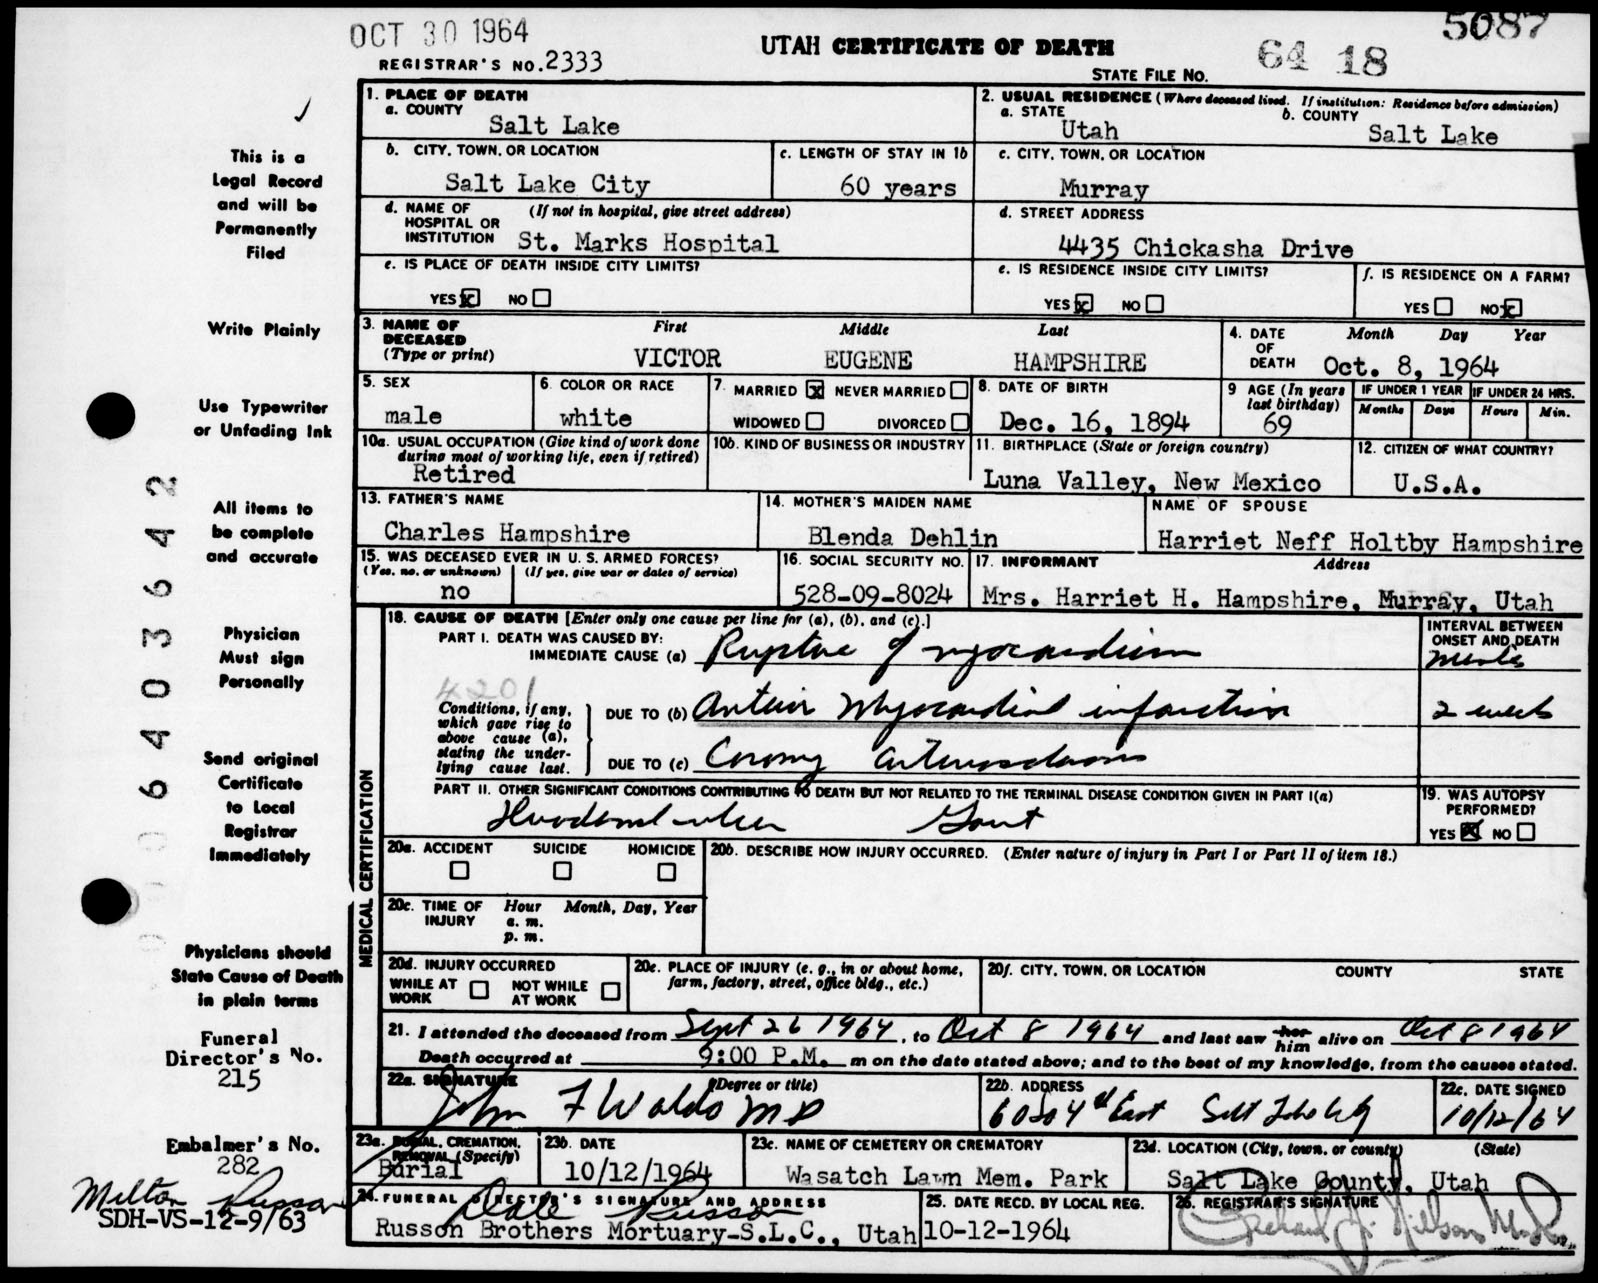 OCT 30 1964
REGISTRAR'S NO. 2333
UTAH CERTIFICATE OF DEATH
5087
STATE FILE NO. 64 18
This is a
Legal Record
and will be
Permanently
Filed
Write Plainly
Use Typewriter
or Unfading Ink
All items to
be complete
and accurate
Physician
Must sign
Personally
Send original
Certificate
to Local
Registrar
Immediately
Physicians should
State Cause of Death
in plain terms
Funeral
Director's No.
215
Embalmer's No.
282
Milton Russon
SDH-VS-12-9/63
006403642
1. PLACE OF DEATH
a. COUNTY
Salt Lake
2. USUAL RESIDENCE (Where deceased lived. If institution: Residence before admission)
a. STATE
Utah
b. COUNTY
Salt Lake
b. CITY, TOWN, OR LOCATION
Salt Lake City
c. LENGTH OF STAY IN 1b
60 years
c. CITY, TOWN, OR LOCATION
Murray
d. NAME OF HOSPITAL OR INSTITUTION (If not in hospital, give street address)
St. Marks Hospital
d. STREET ADDRESS
4435 Chickasha Drive
e. IS PLACE OF DEATH INSIDE CITY LIMITS?
YES x NO
e. IS RESIDENCE INSIDE CITY LIMITS?
YES x NO
f. IS RESIDENCE ON A FARM?
YES NO x
3. NAME OF DECEASED (Type or print)
First Middle Last
VICTOR EUGENE HAMPSHIRE
4. DATE OF DEATH
Month Day Year
Oct. 8, 1964
5. SEX
male
6. COLOR OR RACE
white
7. MARRIED x NEVER MARRIED
WIDOWED DIVORCED
8. DATE OF BIRTH
Dec. 16, 1894
9 AGE (In years last birthday)
69
IF UNDER 1 YEAR IF UNDER 24 HRS.
Months Days Hours Min.
10a. USUAL OCCUPATION (Give kind of work done during most of working life, even if retired)
Retired
10b. KIND OF BUSINESS OR INDUSTRY
11. BIRTHPLACE (State or foreign country)
Luna Valley, New Mexico
12. CITIZEN OF WHAT COUNTRY?
U.S.A.
13. FATHER'S NAME
Charles Hampshire
14. MOTHER'S MAIDEN NAME
Blenda Dehlin
NAME OF SPOUSE
Harriet Neff Holtby Hampshire
15. WAS DECEASED EVER IN U. S. ARMED FORCES?
(Yes, no, or unknown) (If yes, give war or dates of service)
no
16. SOCIAL SECURITY NO.
528-09-8024
17. INFORMANT Address
Mrs. Harriet H. Hampshire, Murray, Utah
MEDICAL CERTIFICATION
18. CAUSE OF DEATH [Enter only one cause per line for (a), (b), and (c).]
PART I. DEATH WAS CAUSED BY:
IMMEDIATE CAUSE (a) Rupture of myocardium
INTERVAL BETWEEN ONSET AND DEATH
4201
Conditions, if any, which gave rise to above cause (a), stating the underlying cause last.
DUE TO (b) Anterior Myocardial infarction
2 weeks
DUE TO (c) Coronary arteriosclerosis
PART II. OTHER SIGNIFICANT CONDITIONS CONTRIBUTING TO DEATH BUT NOT RELATED TO THE TERMINAL DISEASE CONDITION GIVEN IN PART I(a)
Gout
19. WAS AUTOPSY PERFORMED?
YES x NO
20a. ACCIDENT SUICIDE HOMICIDE
20b. DESCRIBE HOW INJURY OCCURRED. (Enter nature of injury in Part I or Part II of item 18.)
20c. TIME OF INJURY Hour Month, Day, Year
a. m.
p. m.
20d. INJURY OCCURRED
WHILE AT WORK NOT WHILE AT WORK
20e. PLACE OF INJURY (e. g., in or about home, farm, factory, street, office bldg., etc.)
20f. CITY, TOWN, OR LOCATION COUNTY STATE
21. I attended the deceased from Sept 26 1964, to Oct 8 1964 and last saw her him alive on Oct 8 1964
Death occurred at 9:00 P.M. m on the date stated above; and to the best of my knowledge, from the causes stated.
22a. SIGNATURE (Degree or title)
John F Waldo MD
22b. ADDRESS
22c. DATE SIGNED
10/12/64
23a. BURIAL, CREMATION, REMOVAL (Specify)
Burial
23b. DATE
10/12/1964
23c. NAME OF CEMETERY OR CREMATORY
Wasatch Lawn Mem. Park
23d. LOCATION (City, town, or county) (State)
Salt Lake County, Utah
24. FUNERAL DIRECTOR'S SIGNATURE AND ADDRESS
Dale Russon
Russon Brothers Mortuary-S.L.C., Utah
25. DATE RECD. BY LOCAL REG.
10-12-1964
26. REGISTRAR'S SIGNATURE